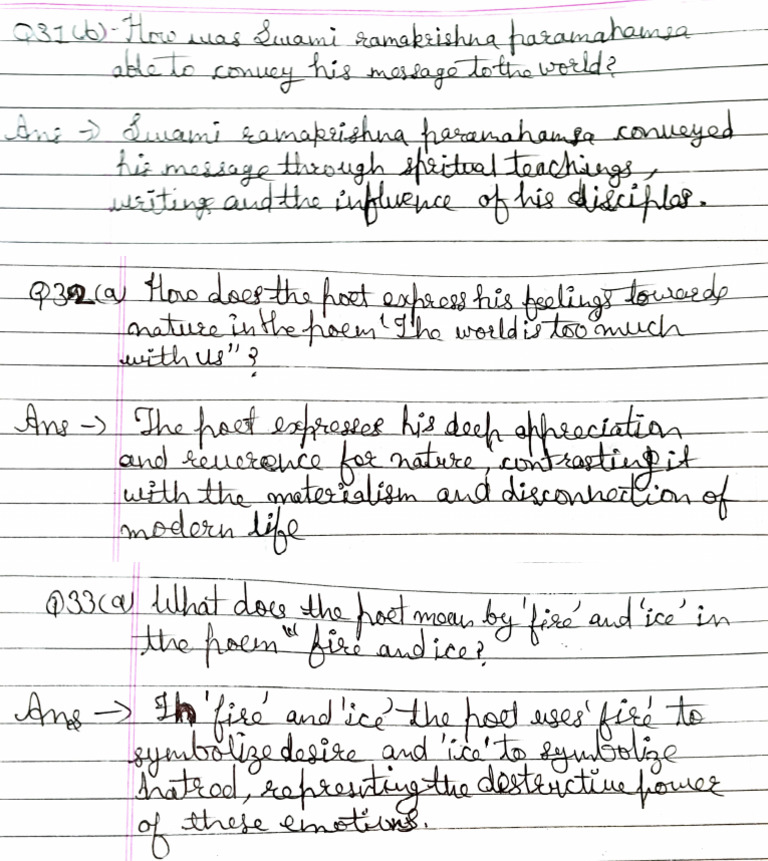 Q31(b)- How was Swami ramakrishna paramahamsa
able to convey his message to the world?
Ans → Swami ramakrishna paramahamsa conveyed
his message through spritual teachings,
writings and the influence of his disciples.
Q32(a) How does the poet express his feelings towards
nature in the poem 'The world is too much
with us"?
Ans → The poet expresses his deep appreciation
and reverence for nature, contrasting it
with the materialism and disconnection of
modern life
Q33(a) What does the poet mean by 'fire' and 'ice' in
the poem " fire and ice?
Ans → In 'fire' and 'ice' the poet uses 'fire' to
symbolize desire and 'ice' to symbolize
hatred, represnting the destructive power
of these emotions.